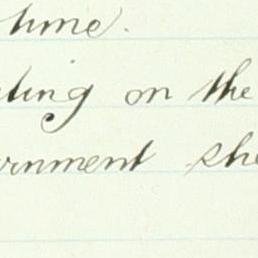 time.
ting on the
rnment she